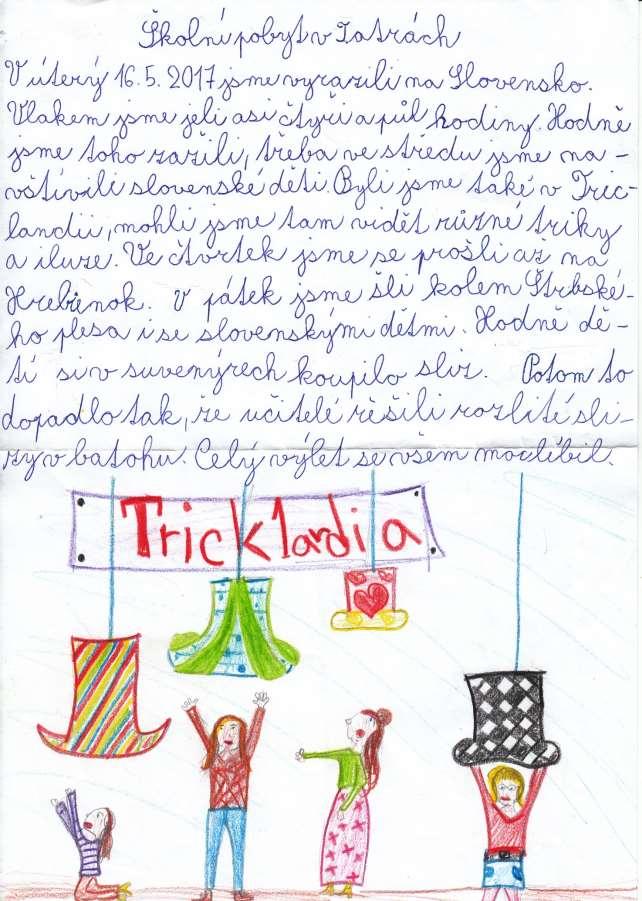 Školní pobyt v Tatrách
V úterý 16.5. 2017 jsme vyrazili na Slovensko.
Vlakem jsme jeli asi čtyři a půl hodiny. Hodně
jsme toho zažili, třeba ve středu jsme na-
vštívili slovenské děti. Byli jsme také v Tric-
landii, mohli jsme tam vidět různé triky
a iluze. Ve čtvrtek jsme se prošli až na
Hrebienok. V pátek jsme šli kolem Štrbské-
ho plesa i se slovenskými dětmi. Hodně dě-
tí si v suvenýrech koupilo sliz. Potom to
dopadlo tak, že učitelé řešili rozlité sli-
zy v batohu. Celý výlet se všem moc líbil.
Tricklandia